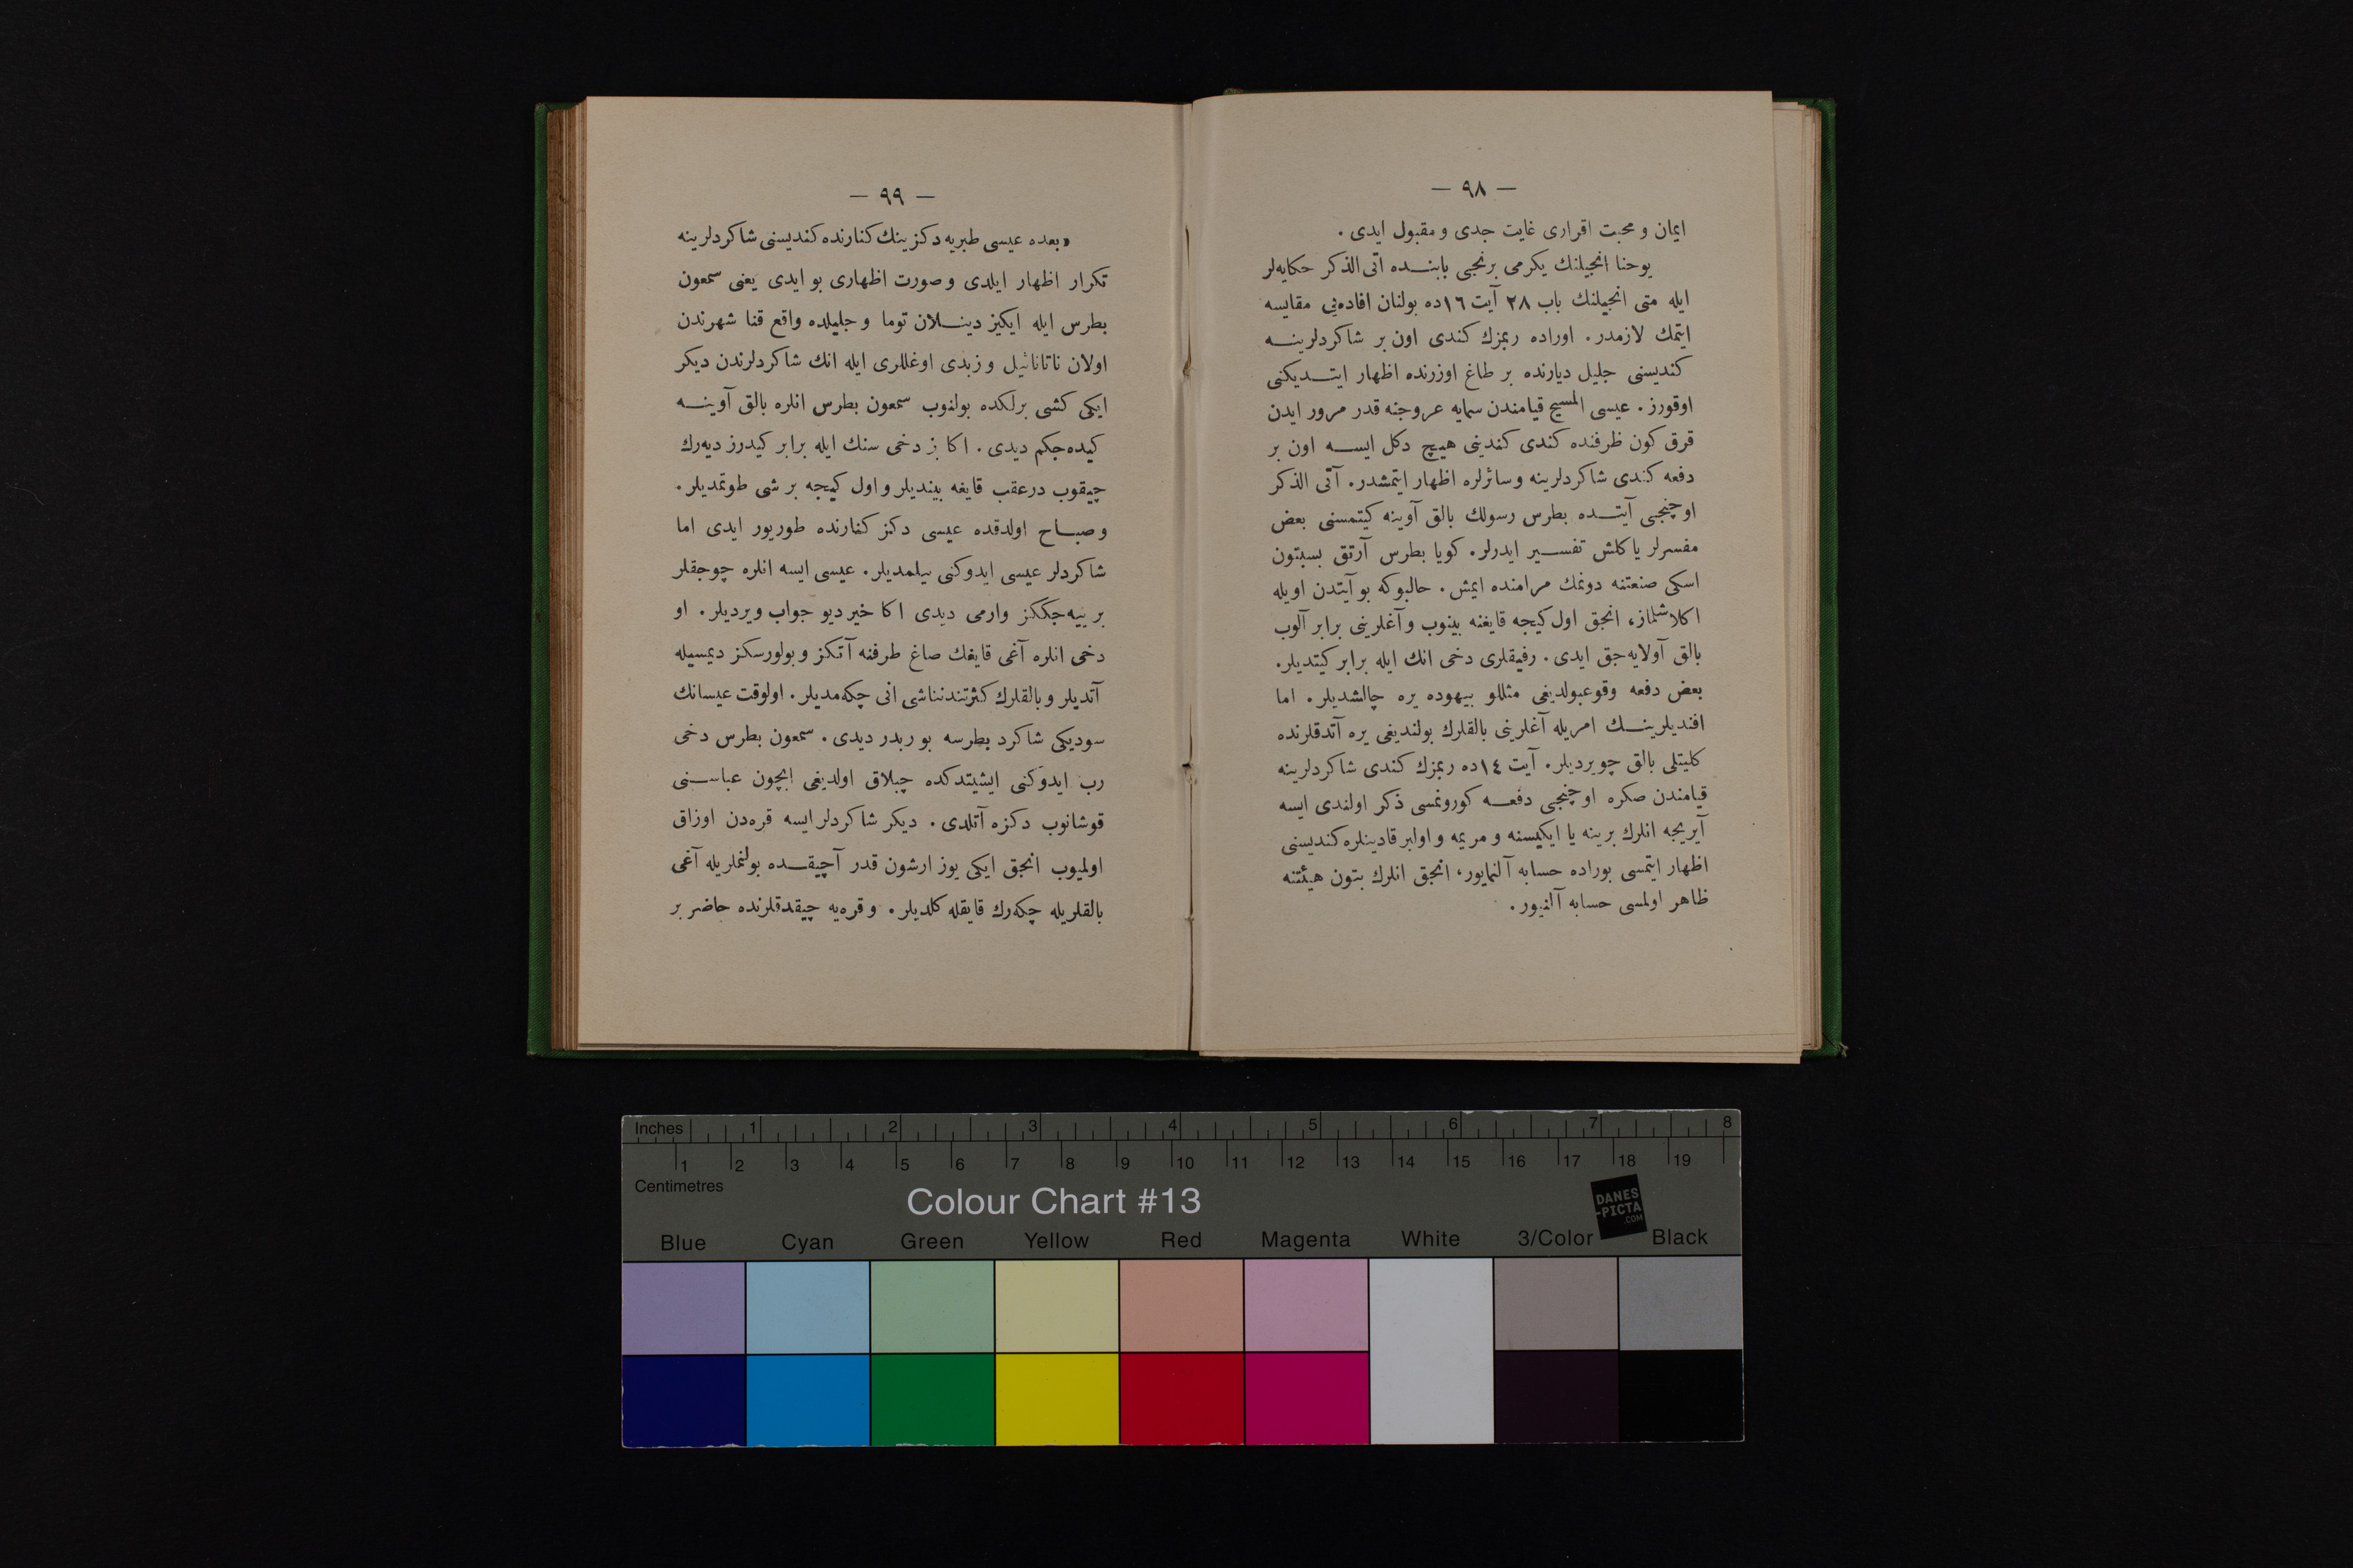 — ٩٨ —
ایمان و محبت اقراری غایت جدی و مقبول ایدی .
یوحنا انجیلنك یكرمی برنجی بابنده اتی الذكر حكایه‌لر
ایله متی انجیلنك باب ٢٨ آیت ١٦ده بولنان افاده‌یی مقایسه
ایتمك لازمدر . اوراده ربمزك كندی اون بر شاكردلرینه
كندیسنی جلیل دیارنده بر طاغ اوزرنده اظهار ایتدیكنی
اوقورز . عیسی المسیح قیامندن سمایه عروجنه قدر مرور ایدن
قرق كون ظرفنده كندی كندینی هیچ دكل ایسه اون بر
دفعه كندی شاكردلرینه و سائرلره اظهار ایتمشدر . آتی الذكر
اوچنجی آیتده بطرس رسولك بالق آوینه كیتمسنی بعض
مفسرلر یاكلش تفسیر ایدرلر . كویا بطرس آرتق بسبتون
اسكی صنعتنه دونمك مرامنده ایمش . حالبوكه بو آیتدن اویله
اكلاشلماز ، انجق اول كیجه قایغنه بینوب و آغلرینی برابر آلوب
بالق آولایه‌جق ایدی . رفیقلری دخی انك ایله برابر كیتدیلر .
بعض دفعه وقوعبولدیغی مثللو بیهوده یره چالشدیلر . اما
افندیلرینك امریله آغلرینی بالقلرك بولندیغی یره آتدقلرنده
كلیتلی بالق چویردیلر . آیت ١٤ده ربمزك كندی شاكردلرینه
قیامندن صكره اوچنجی دفعه كورونمسی ذكر اولندی ایسه
آیریجه انلرك برینه یا ایكیسنه و مریمه و اولبر قادینلره كندیسنی
اظهار ایتمسی بوراده حسابه آلنمایور ، انجق انلرك بتون هیئتنه
ظاهر اولمسی حسابه آلنیور .
— ٩٩ —
« بعده عیسی طبریه دكزینك كنارنده كندیسنی شاكردلرینه
تكرار اظهار ایلدی و صورت اظهاری بو ایدی یعنی سمعون
بطرس ایله ایكیز دینلان توما و جلیلده واقع قنا شهرندن
اولان ناتانائیل و زبدی اوغللری ایله انك شاكردلرندن دیكر
ایكی كشی برلكده بولنوب سمعون بطرس انلره بالق آوینه
كیده‌جكم دیدی . اكا بز دخی سنك ایله برابر كیدرز دیه‌رك
چیقوب درعقب قایغه بیندیلر و اول كیجه بر شی طوتمدیلر .
و صباح اولدقده عیسی دكز كنارنده طوریور ایدی اما
شاكردلر عیسی ایدوكنی بیلمدیلر . عیسی ایسه انلره چوجقلر
بر ییه‌جككز وارمی دیدی اكا خیر دیو جواب ویردیلر . او
دخی انلره آغی قایغك صاغ طرفنه آتكز و بولورسكز دیمسیله
آتدیلر و بالقلرك كثرتندنناشی انی چكه‌مدیلر . اولوقت عیسانك
سودیكی شاكرد بطرسه بو ربدر دیدی . سمعون بطرس دخی
رب ایدوكنی ایشیتدكده چپلاق اولدیغی ایچون عباسنی
قوشانوب دكزه آتلدی . دیكر شاكردلر ایسه قره‌دن اوزاق
اولمیوب انجق ایكی یوز ارشون قدر آچیقده بولنملریله آغی
بالقلریله چكه‌رك قایقله كلدیلر . و قره‌یه چیقدقلرنده حاضر بر
Inches 1 2 3 4 5 6 7 8
1 2 3 4 5 6 7 8 9 10 11 12 13 14 15 16 17 18 19
Centimetres
Colour Chart #13
DANES
-PICTA
.COM
Blue Cyan Green Yellow Red Magenta White 3/Color Black